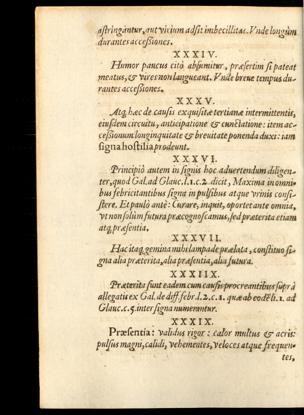 astringantur, aut vicium adsit imbecillitac. Vnde longùm
durantes accessiones.
XXXIV.
Humor pancus citò absumitur, præsertim si pateat
meatus, & vires non langueant. Vnde breve tempus du-
rantes accessiones.
XXXV.
Atq, hæc de causis exquisitæ tertianæ intermittentis,
eiusdem circuitu, anticipatione & cunctatione: item ac-
cessionum longinquitate & brevitate ponenda duxi: iam
signa hostilia prodeunt.
XXXVI.
Principiò autem in signis hoc advertendum diligen-
ter, quod Gal. ad Glauc. l. 1. c. 2. dicit, Maxima in omni-
bus febricitantibus signa in pulsibus atque vrinis consi-
stere. Et paulò antè: Curare, inquit, oportet ante omnia,
vt non solùm futura præcognoscamus, sed præterita etiam
atq, præsentia.
XXXVII.
Hac itaq, gemina nubi lampade prælata, constituo si-
gna alia præterita, alia præsentia, alia futura.
XXXIIX.
Præterita sunt eadem cum causis procreantibus suprà
allegatis ex Gal. de diff. febr. l. 2. c. 1. quæ ab eodē l. 1. ad
Glauc. c. 5. inter signa numerantur.
XXXIX.
Præsentia: validus rigor: calor multus & acris:
pulsus magni, calidi, vehementes, veloces atque frequen-
tes,